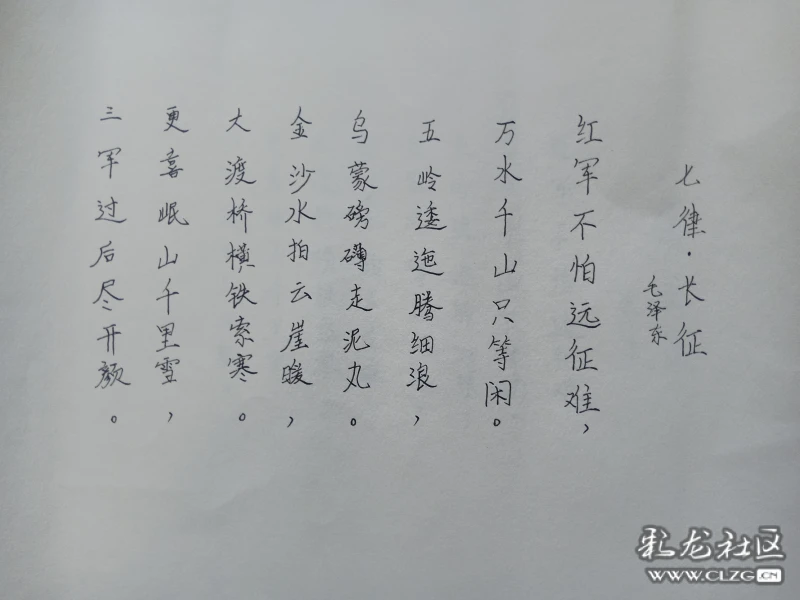 七律·长征
毛泽东
红军不怕远征难，
万水千山只等闲。
五岭逶迤腾细浪，
乌蒙磅礴走泥丸。
金沙水拍云崖暖，
大渡桥横铁索寒。
更喜岷山千里雪，
三军过后尽开颜。
彩龙社区
WWW.CLZG.CN